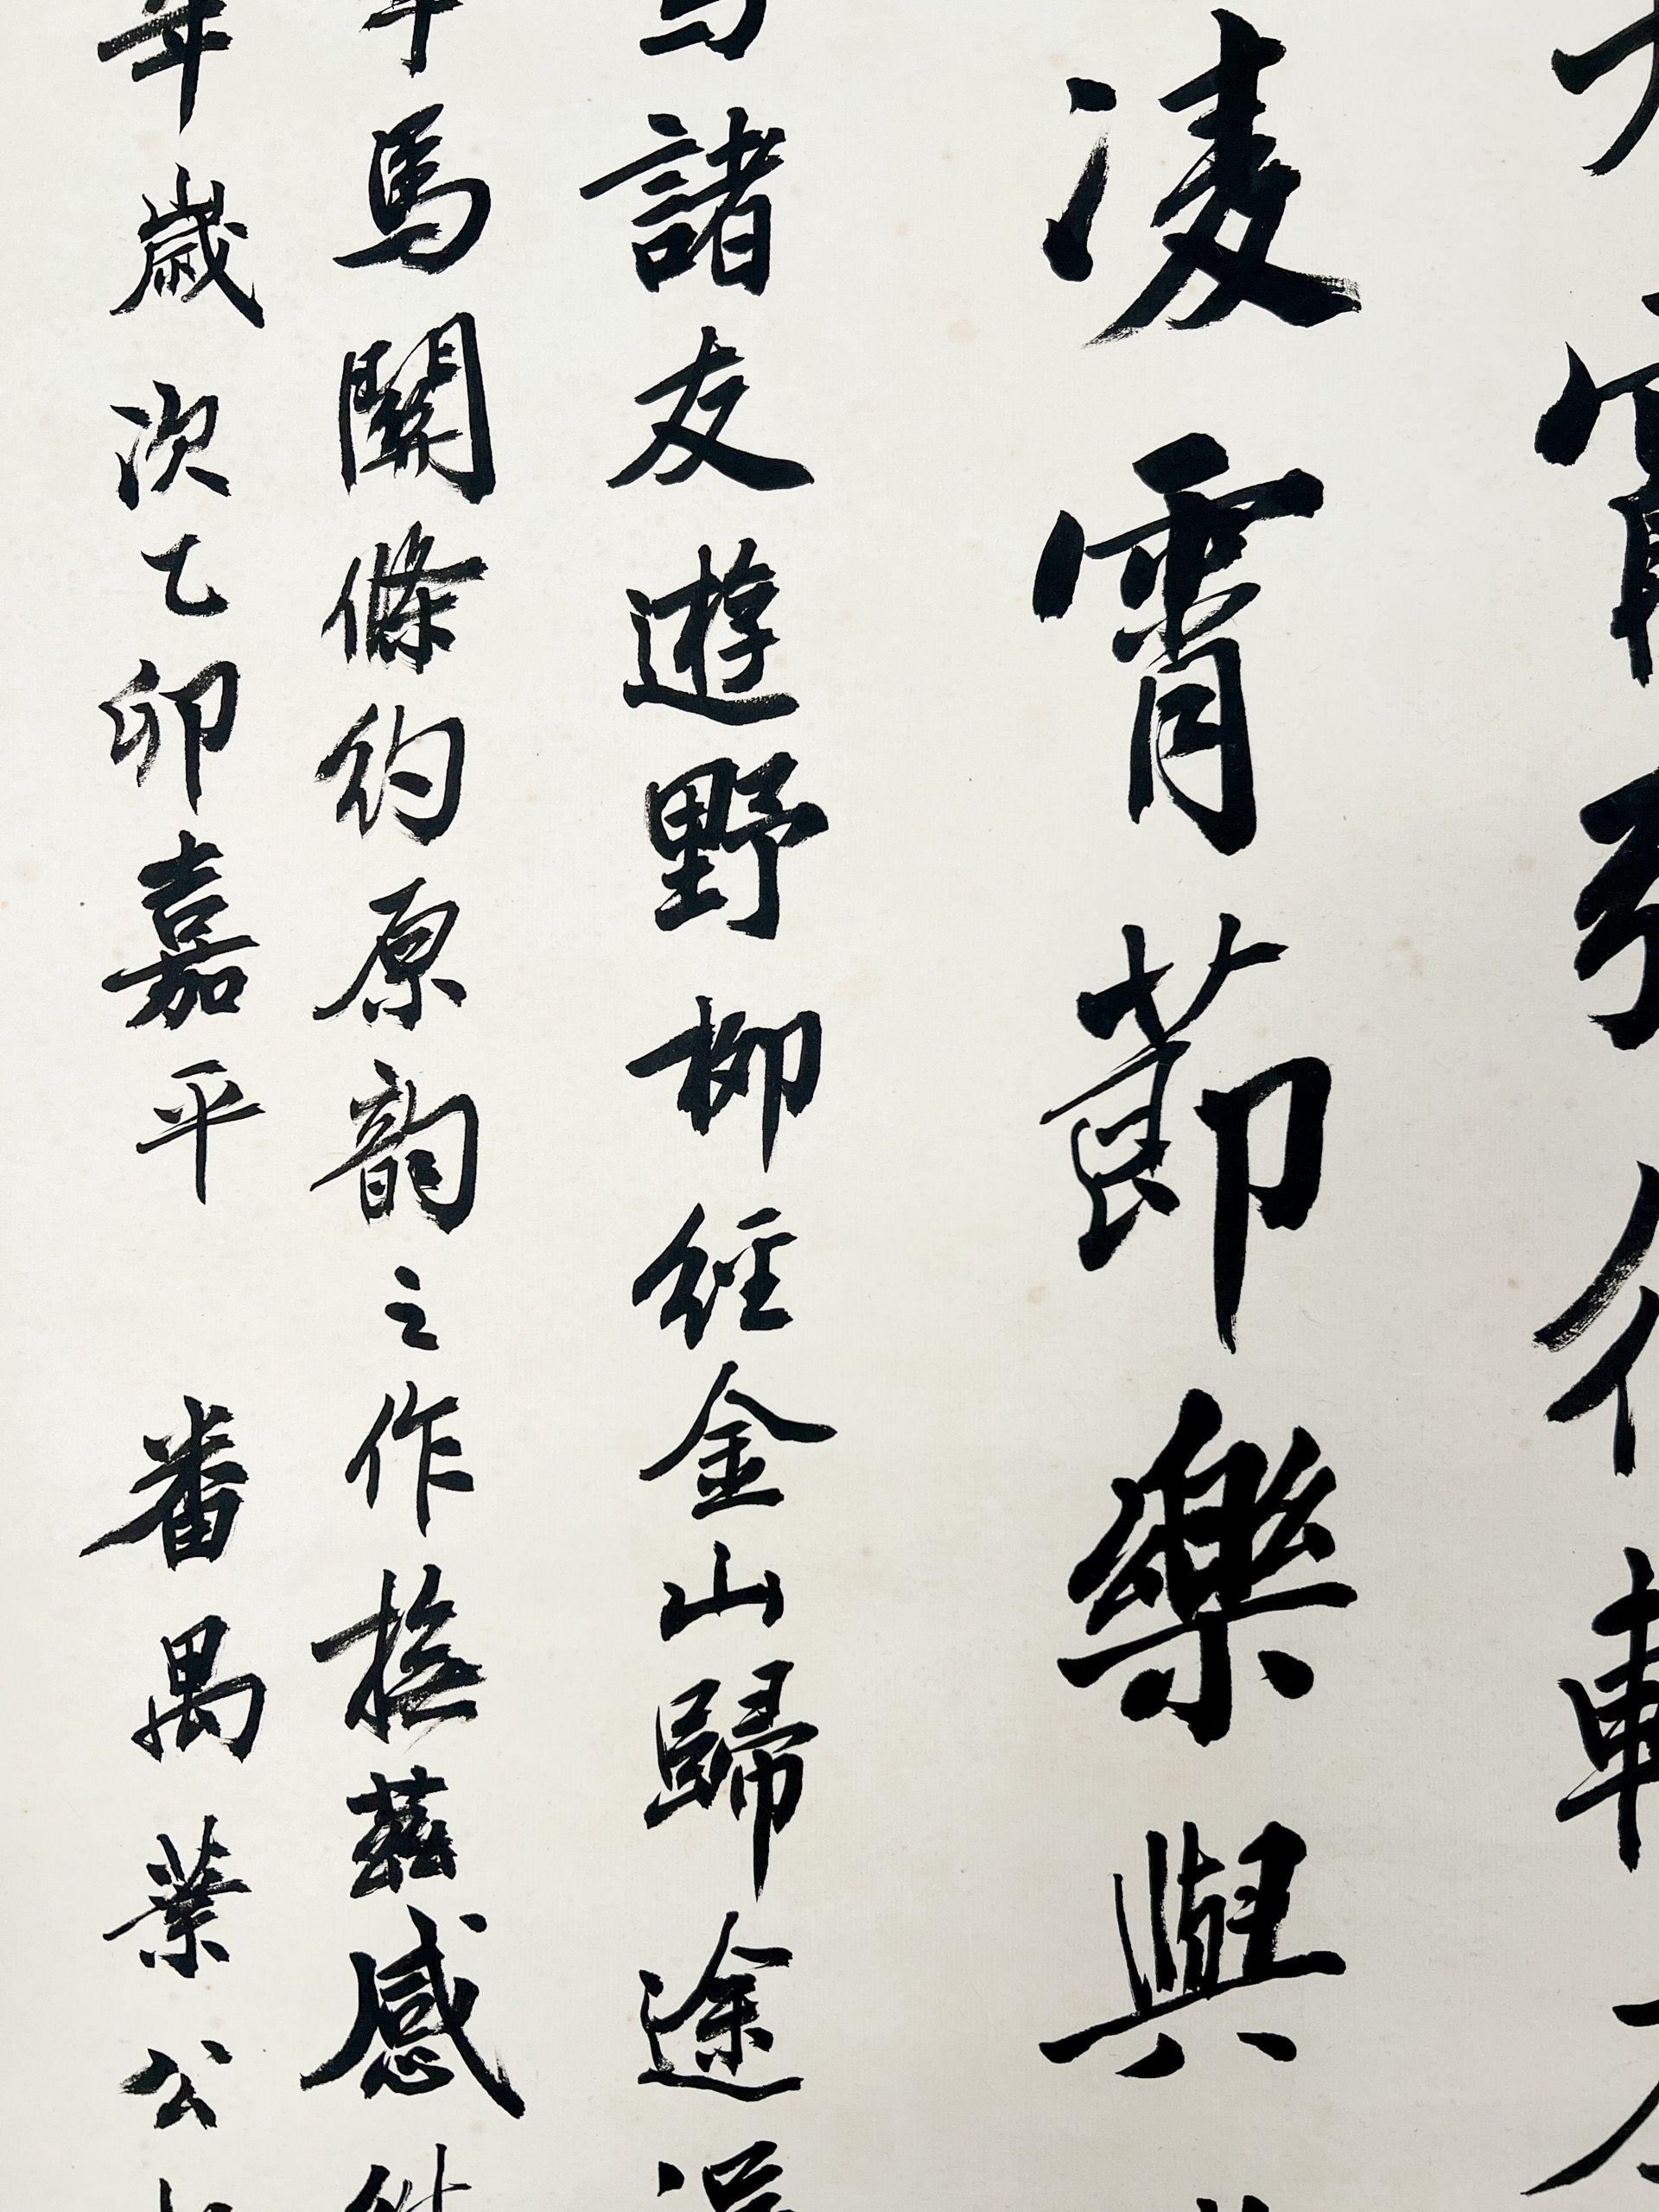 凌霄節樂與
諸友遊野柳經金山歸途
馬關條約原韻之作撫茲感
年歲次乙卯嘉平 番禺葉公